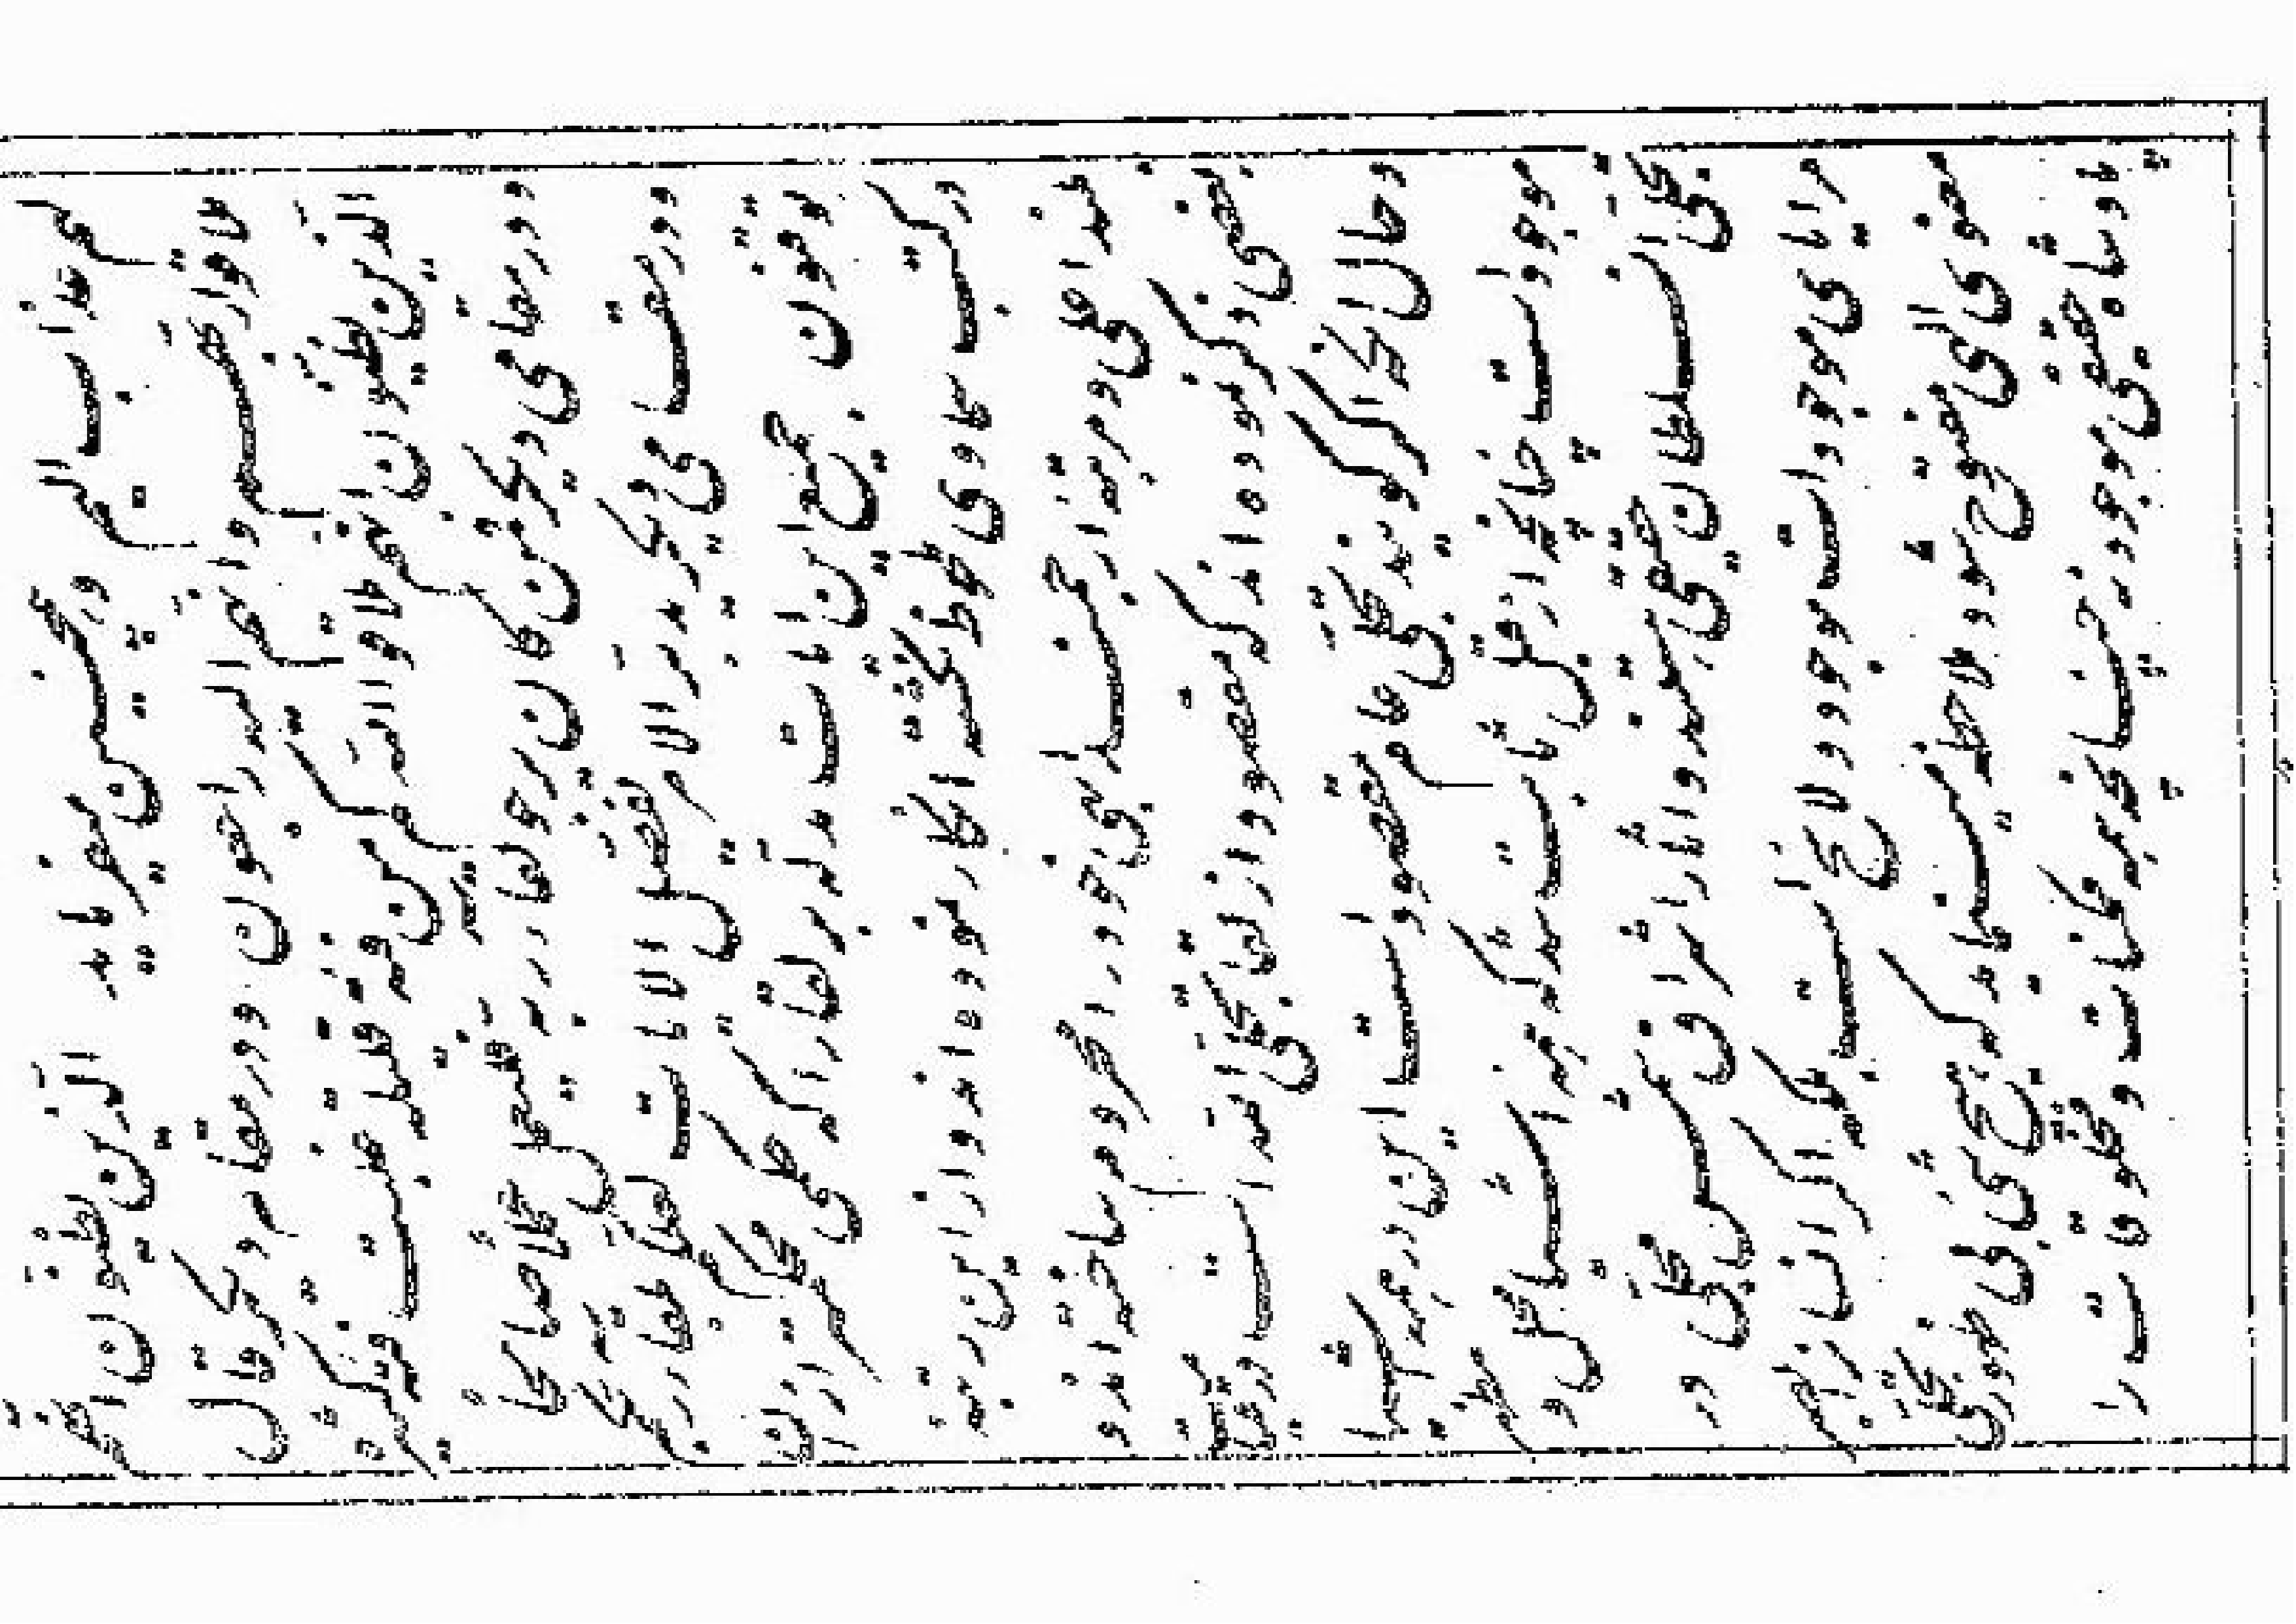 و همچنین میفرماید الذین یظنون انهم
ملاقوا ربهم و انهم الیه راجعون و در مقام دیگر قال
الذین یظنون انهم ملاقوا الله کم من فئة قلیلة غلبت فئة کثیرة
و در مقامی دیگر فمن کان یرجو لقاء ربه فلیعمل عملا صالحا
و در مقامی دیگر یدبر الامر یفصل الآیات لعلکم بلقاء ربکم
توقنون جمیع این آیات مدله بر لقا را که حکمی محکمتر از آن
در کتب سماوی ملحوظ نگشته انکار نموده‌اند و از این رتبه
بلند اعلی و مرتبه ارجمند ابهی خود را محروم ساخته‌اند و
بعضی ذکر نموده‌اند که مقصود از لقا تجلی الله است در قیامت
و حال آنکه اگر گویند تجلی عام مقصود است این در همه اشیا
موجود است چنانچه از قبل ثابت شد که همه اشیا محل و مظهر
تجلی آن سلطان حقیقی هستند و آثار اشراق شمس مجلی در
مرایای موجودات موجود و لائح است بلکه اگر انسان را بصر
معنوی الهی مفتوح شود ملاحظه مینماید که هیچ شیئی بی ظهور تجلی
پادشاه حقیقی موجود نه چنانچه همه ممکنات و مخلوقات را